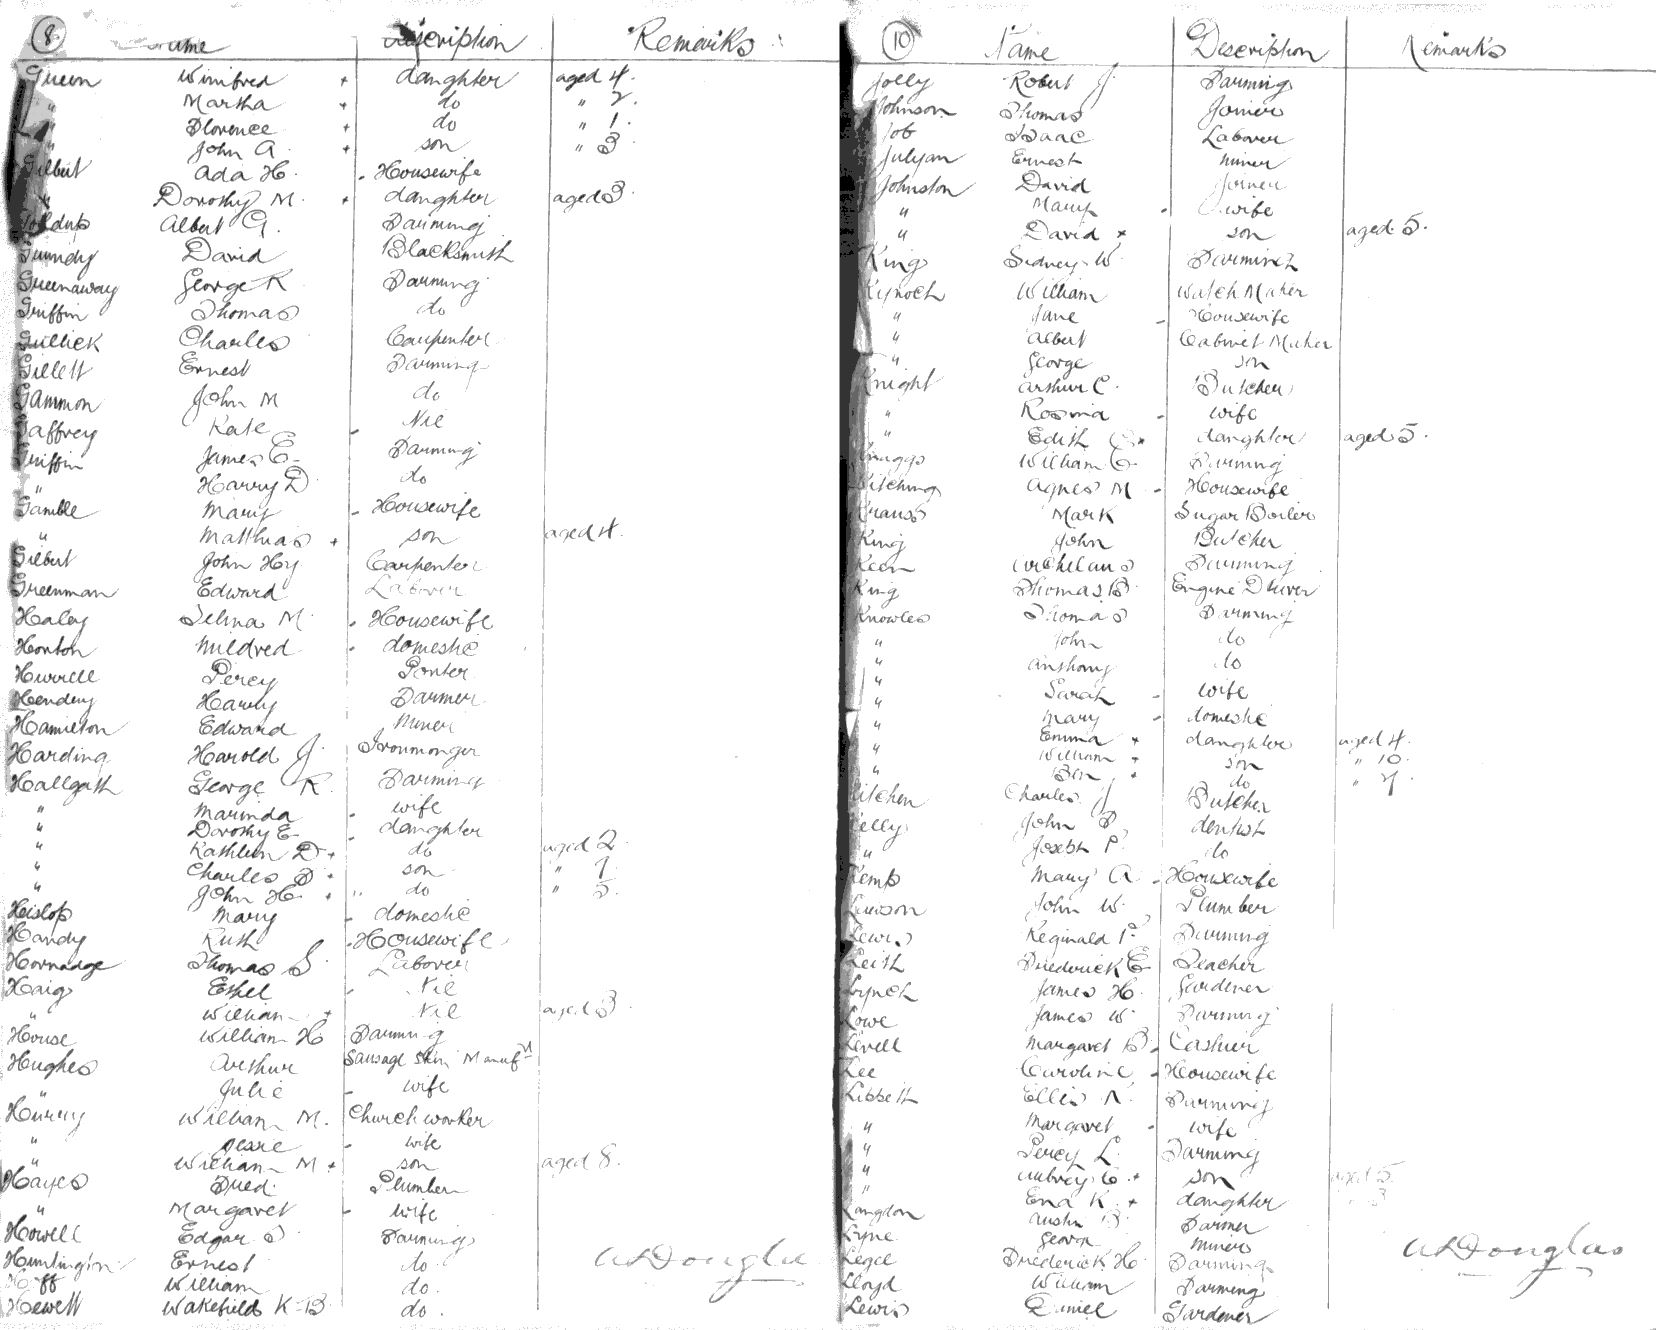 8 Name Description Remarks
Green Winifred + daughter aged 4.
" Martha + do " 2.
" Florence + do " 1.
" John A. + son " 3
Gilbert Ada H. - Housewife
" Dorothy M. + daughter aged 3
Albert G. Farming
Grundy David Blacksmith
Greenaway George R Farming
Griffin Thomas do
Gullick Charles Carpenter
Gillett Ernest Farming
Gammon John M do
Gaffrey Kate - Nil
Griffin James E. Farming
" Harry D do
Gamble Mary - Housewife
" Matthias + son aged 4.
Gilbert John Hy Carpenter
Greenman Edward Laborer
Haley Selina M. - Housewife
Horton Mildred - domestic
Hurrell Percy Porter
Hendry Harry Farmer
Hamilton Edward Miner
Harding Harold J. Ironmonger
Hallgath George R. Farming
" Marinda - wife
" Dorothy E - daughter
" Kathleen D + do aged 2
" Charles F + son " 7
" John H + do " 5
Hislop Mary - domestic
Handy Ruth - Housewife
Hornadge Thomas S Laborer
Haig Ethel - Nil
" William + Nil aged 3
House William H Farming
Hughes Arthur Sausage Skin Manufr
" Julie - wife
Hurry William M. Church worker
" Jessie - wife
" William M + son aged 8.
Hayes Fred. Plumber
" Margaret - wife
Howell Edgar S Farming
Huntington Ernest do
Huff William do.
Hewett Wakefield K B do.
Douglas
10 Name Description Remarks
Jolly Robert J. Farming
Johnson Thomas Joiner
Job Isaac Laborer
Julyan Ernest Miner
Johnston David Joiner
" Mary - wife
" David + son aged 5.
King Sidney W. Farming
Kynoch William Watch Maker
" Jane - Housewife
" Albert Cabinet Maker
" George son
Knight Arthur C. Butcher
" Rosina - wife
" Edith + daughter aged 5.
Knaggs William C. Farming
Kitching Agnes M - Housewife
Krauss Mark Sugar Boiler
King John Butcher
Keen Archelaus Farming
King Thomas B. Engine Driver
Knowles Thomas Farming
" John do
" Anthony do
" Sarah - wife
" Mary - domestic
" Emma + daughter aged 4.
" William + son " 10.
" Ben + do " 7
Kitchen Charles J Butcher
Kelly John dentist
" Joseph P. do
Kemp Mary A - Housewife
Lawson John W. Plumber
Lewis Reginald P. Farming
Leith Frederick E Teacher
Lynch James H. Gardener
Lowe James W. Farming
Levell Margaret B - Cashier
Lee Caroline - Housewife
Libbett Ellis N. Farming
" Margaret - wife
" Percy L. Farming
" Aubrey C. + son aged 5
" Ena K. + daughter " 3
Langdon Austin B. Farmer
Lyne George Miner
Legee Frederick H. Farming
Lloyd William Farming
Lewis Daniel Gardener
Douglas